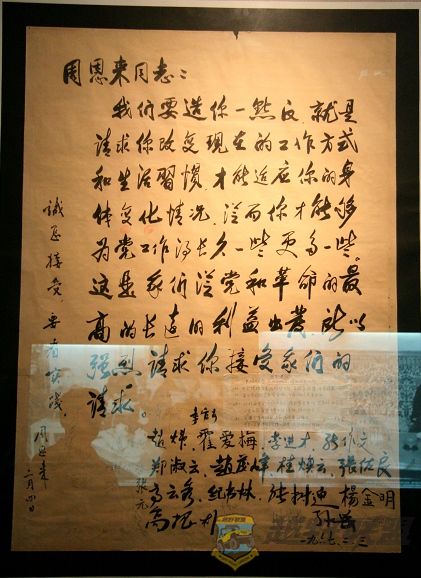 周恩来同志：
我们要造你一点反，就是
请求你改变现在的工作方式
和生活習惯，才能适应你的身
体变化情况，从而你才能够
为党工作得长久一些，更多一些。
这是我们从党和革命的最
高的长远的利益出发，所以
强烈请求你接受我们的
请求。
诚恳接受 要看实践
周恩来
二月四日
赵炜 霍爱梅
郑淑云 赵茂峰 桂焕云 張佐良
張元
高云秀 楊金明
高振
一九六七.二.三